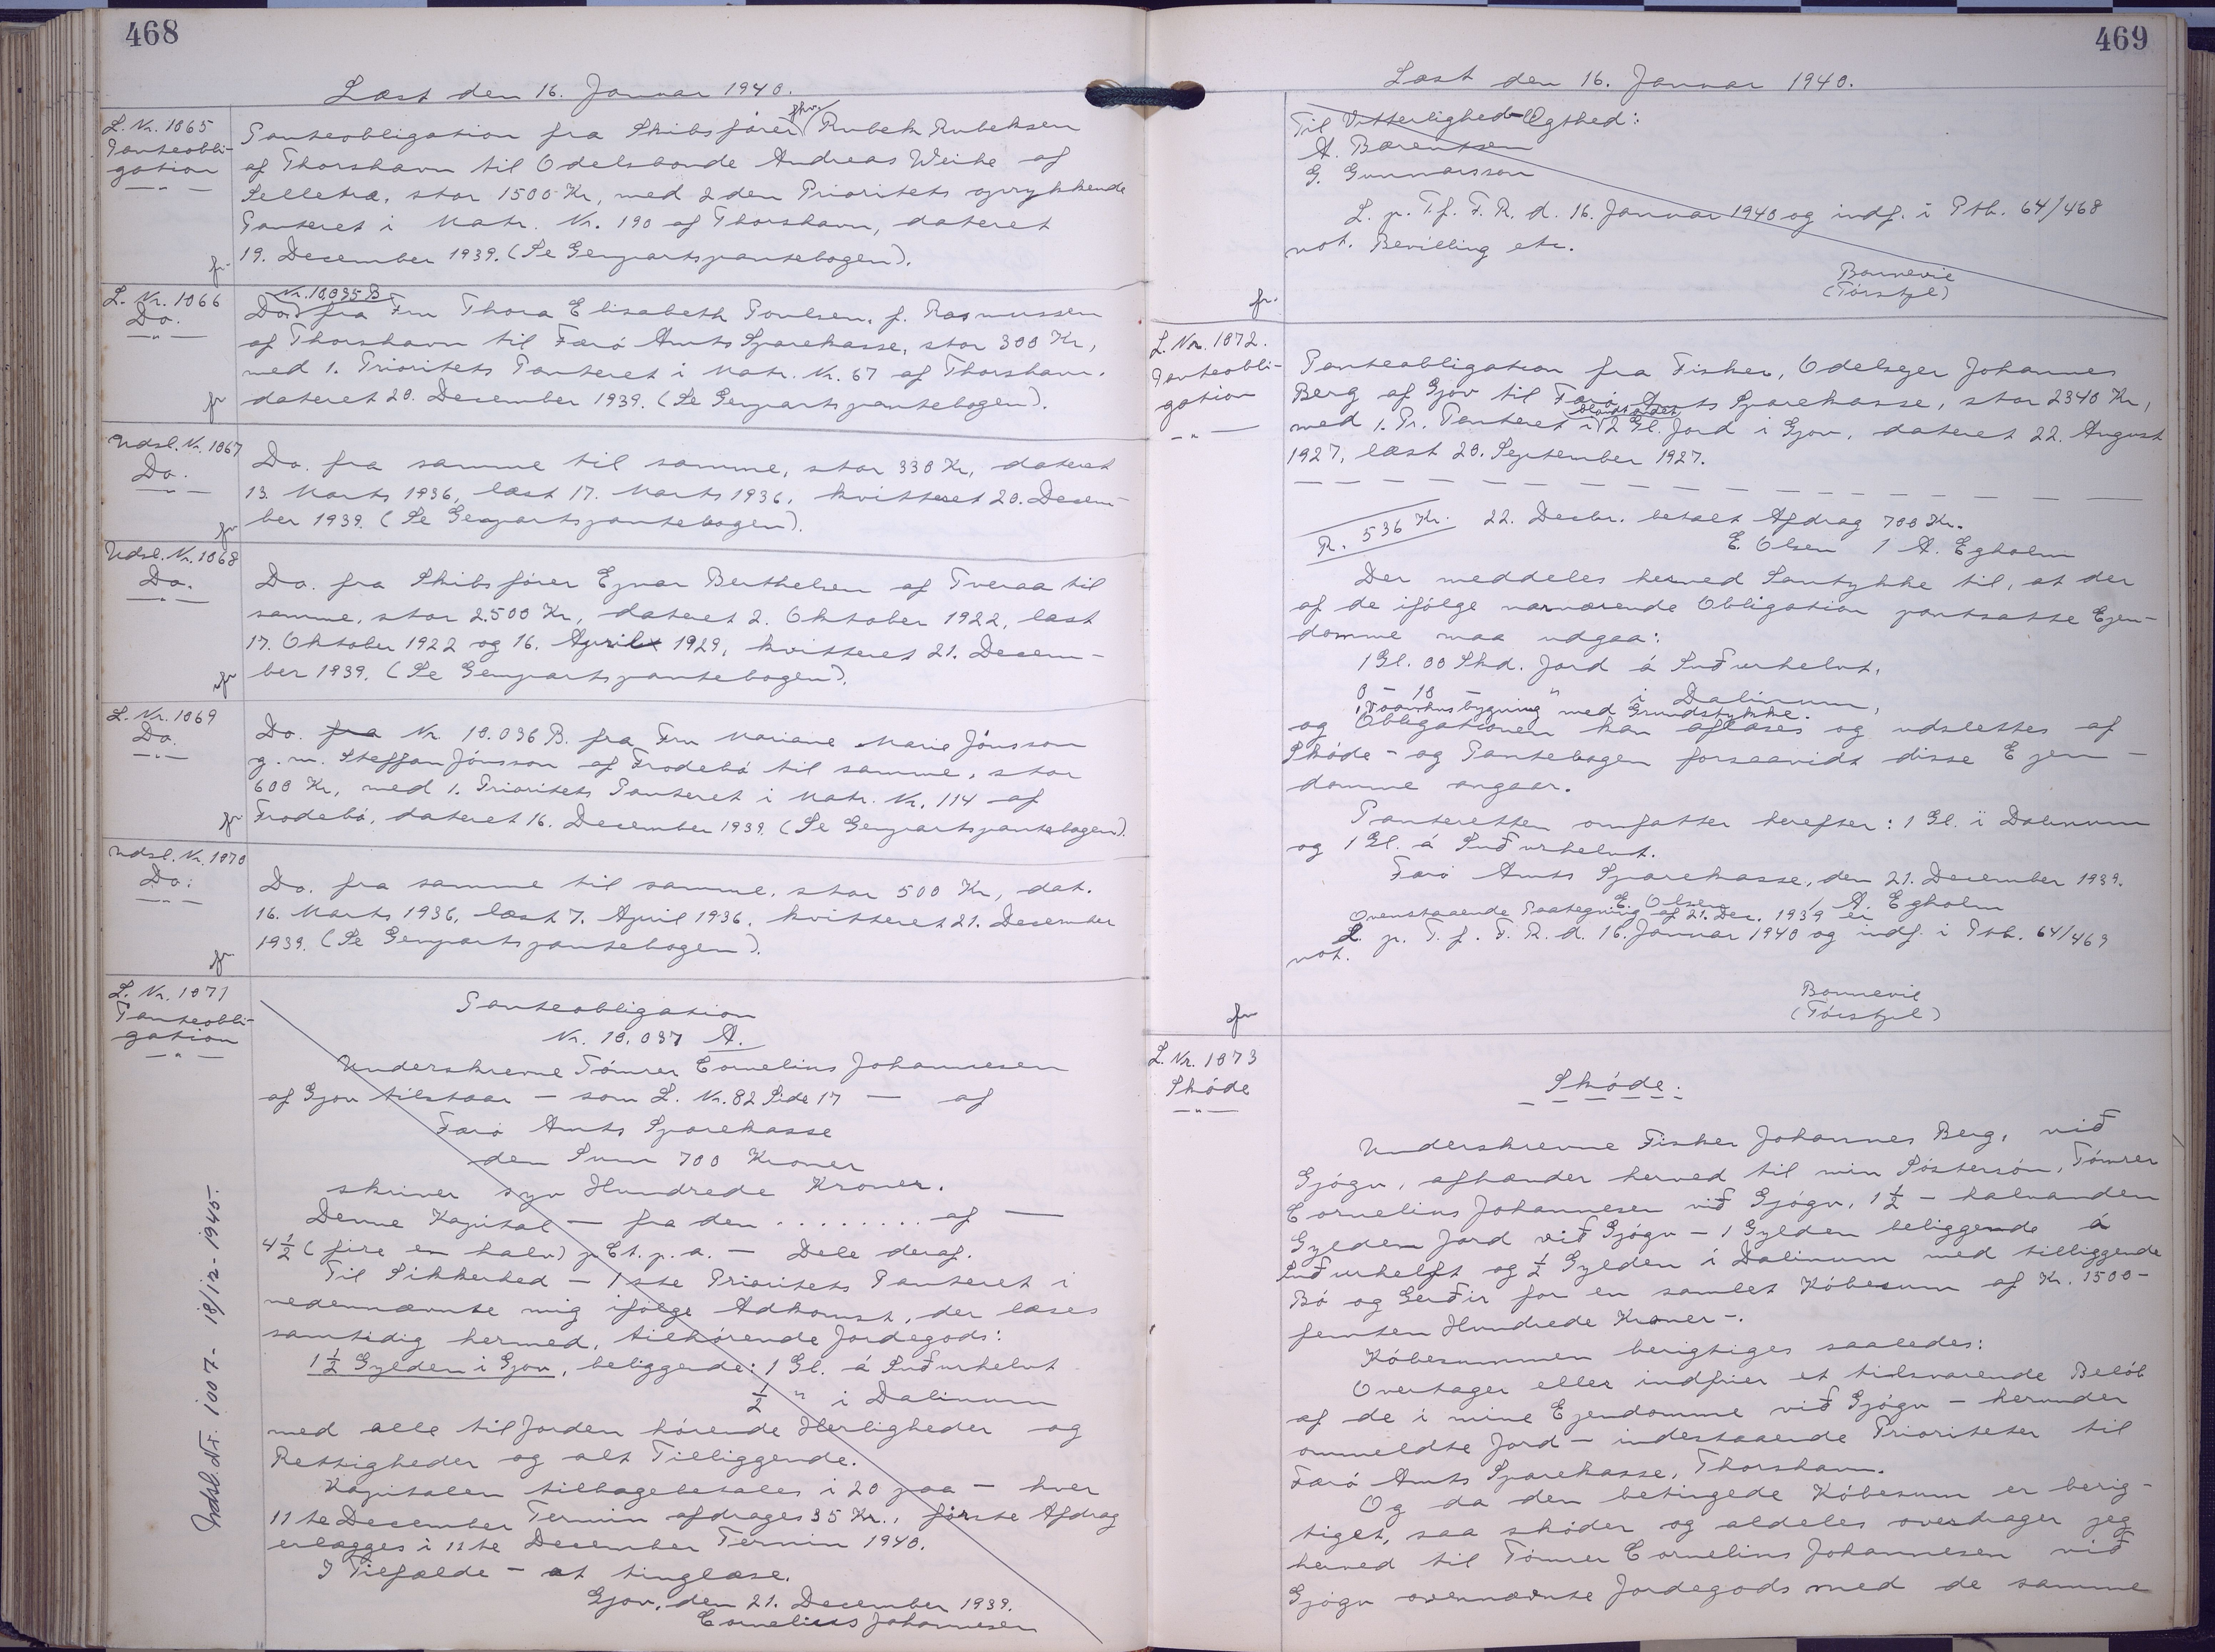 468
Læst den 16. Januar 1940.
L. Nr. 1065
Panteobli-
gation
fhv.
Panteobligation fra Skibsfører Rubek Rubeksen
af Thorshavn til Odelsbonde Andreas Weihe af
Selletræ, stor 1500 Kr, med 2den Prioritets oprykkende
Panteret i Matr. Nr. 190 af Thorshavn, dateret
19. December 1939. (Se Genpartspantebogen).
fr.
L. Nr. 1066
Do.
Nr. 10.035 B
Do. fra Fru Thora Elisabeth Poulsen, f. Rasmussen
af Thorshavn til Færø Amts Sparekasse, stor 300 Kr,
med 1. Prioritets Panteret i Matr. Nr. 67 af Thorshavn.
dateret 20. December 1939. (Se Genpartspantebogen).
fr
Udsl. Nr. 1067
Do.
Do. fra samme til samme, stor 330 Kr, dateret
13. Marts 1936, læst 17. Marts 1936, kvitteret 20. Decem-
ber 1939. (Se Genpartspantebogen).
fr
Udsl. Nr. 1068
Do.
Do. fra Skibsfører Ejnar Berthelsen af Tveraa til
samme, stor 2.500 Kr, dateret 2. Oktober 1922, læst
17. Oktober 1922 og 16. April 1929, kvitteret 21. Decem-
ber 1939. (Se Genpartspantebogen).
fr
L. Nr. 1069
Do.
Do. fra Nr. 10.036 B. fra Fru Mariane Marie Jónsson
g. m. Steffan Jónsson af Frodebø til samme, stor
600 Kr, med 1. Prioritets Panteret i Matr. Nr. 114 af
Frodebø, dateret 16. December 1939. (Se Genpartspantebogen).
fr
Udsl. Nr. 1070
Do.
Do. fra samme til samme, stor 500 Kr, dat.
16. Marts 1936, læst 7. April 1936, kvitteret 21. December
1939. (Se Genpartspantebogen).
fr
L. Nr. 1071
Panteobli-
gation
Udsl. Nr. 1007 - 18/12-1945.
Panteobligation
Nr. 10.037 A.
Underskrevne Tømrer Cornelius Johannesen
af Gjov tilstaar - som L. Nr. 82 Side 17 - af
Færø Amts Sparekasse
den Sum 700 Kroner
skriver syv Hundrede Kroner.
Denne Kapital - fra den ........ af -
4½ (fire en halv) pCt. p. a. - Dele deraf.
Til Sikkerhed - 1ste Prioritets Panteret i
nedennævnte mig ifølge Adkomst, der læses
samtidig hermed, tilhørende Jordegods:
1½ Gylden i Gjov, beliggende: 1 Gl. á Suðurhelvt
½ " i Dalinum
med alle til Jorden hørende Herligheder og
Rettigheder og alt Tilliggende.
Kapitalen tilbagebetales i 20 paa - hver
11te December Termin afdrages 35 Kr., første Afdrag
erlægges i 11te December Termin 1940.
I Tilfælde - at tinglæse.
Gjov, den 21. December 1939.
Cornelius Johannesen
469
Læst den 16. Januar 1940.
Til Vitterlighed - Ægthed:
A. Bærentsen
G. Gunnarsson
L. p. T. f. F. R. d. 16. Januar 1940 og indf. i Ptb. 64/468
not. Bevilling etc.
Bonnevie
(Tórstjl)
fr.
L. Nr. 1072.
Panteobli-
gation
Panteobligation fra Fisker, Odelsejer Johannes
Berg af Gjov til Færø Amts Sparekasse, stor 2340 Kr,
med 1. Pr. Panteret i 2 Gl. Jord i Gjov, dateret 22. August
1927, læst 20. September 1927.
R. 536 Kr. 22. Decbr. betalt Afdrag 700 Kr.
E. Olsen / A. Egholm
Der meddeles herved Samtykke til, at der
af de ifølge nærværende Obligation pantsatte Ejen-
domme maa udgaa:
1 Gl. 00 Skd. Jord á Suðurhelvt,
0 - 10 - " i Dalinum,
Vaanhusbygning med Grundstykke.
og Obligationen kan aflæses og udslettes af
Skøde- og Pantebogen forsaavidt disse Ejen-
domme angaar.
Panteretten omfatter herefter: 1 Gl. i Dalinum
og 1 Gl. á Suðurhelvt.
Færø Amts Sparekasse, den 21. December 1939.
E. Olsen / A. Egholm
Ovenstaaende Paategning af 21. Dec. 1939 er
L. p. T. f. F. R. d. 16. Januar 1940 og indf. i Ptb. 64/469
not.
Bonnevie
(Tórstjl)
fr
L. Nr. 1073
Skøde
Skøde.
Underskrevne Fisker Johannes Berg, við
Gjógv, afhænder herved til min Søstersøn, Tømrer
Cornelius Johannesen við Gjógv, 1½ - halvanden
Gylden Jord við Gjógv - 1 Gylden beliggende á
Suðurhelft og ½ Gylden i Dalinum med tilliggende
Bø og Gerðir for en samlet Købesum af Kr. 1500-
femten Hundrede Kroner-.
Købesummen berigtiges saaledes:
Overtager eller indfrier et tilsvarende Beløb
af de i mine Ejendomme við Gjógv - herunder
ommeldte Jord - indestaaende Prioriteter til
Færø Amts Sparekasse, Thorshavn.
Og da den betingede Købesum er berig-
tiget, saa skøder og aldeles overdrager jeg
herved til Tømrer Cornelius Johannesen við
Gjógv ovennævnte Jordegods med de samme